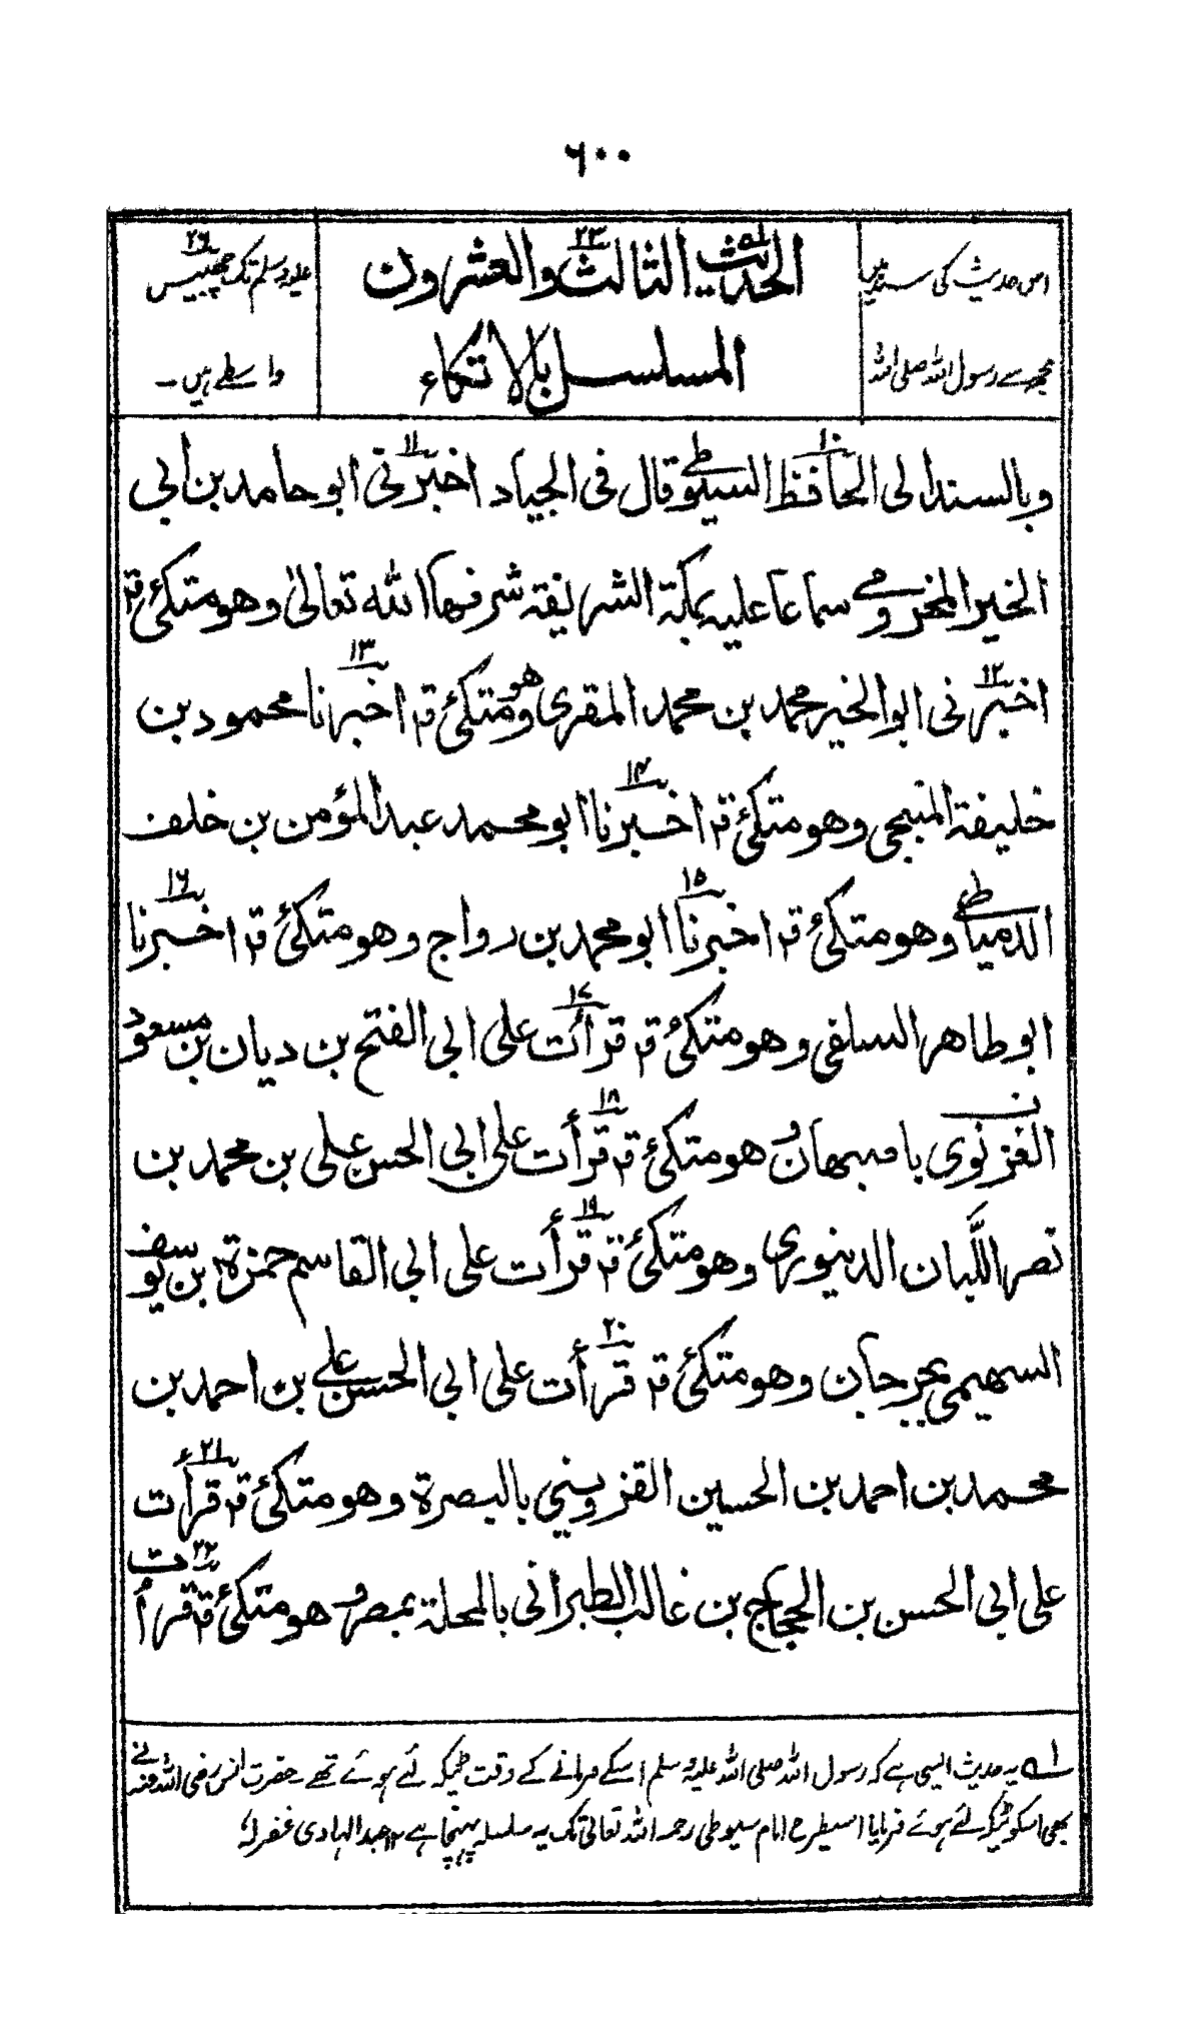 ۶۰۰
اس حدیث کی سند میں
مجھ سے رسول اللہ صلی اللہ
الحدیث الثالث والعشرون ۲۳
المسلسل بالاتکاء
علیہ وسلم تک چھبیس ۲۶
واسطے ہیں۔
وبالسند الی الحافظ ۱۰ السیوطی قال فی الجیاد اخبرنی ۱۱ ابو حامد بن ابی
الخیر المخزومی سماعا علیہ بمکۃ الشریفۃ شرفھا اللہ تعالیٰ وھو متکئ قٰ
اخبرنی ۱۲ ابو الخیر محمد بن محمد المقری وھو متکئ قٰ اخبرنا ۱۳ محمود بن
خلیفۃ المنبجی وھو متکئ قٰ اخبرنا ۱۴ ابو محمد عبد المؤمن بن خلف
الدمیاطی وھو متکئ قٰ اخبرنا ۱۵ ابو محمد بن رواج وھو متکئ قٰ اخبرنا ۱۶
ابو طاھر السلفی وھو متکئ قٰ قرأت ۱۷ علی ابی الفتح بن دیان بن مسعود
الغزنوی باصبھان وھو متکئ قٰ قرأت ۱۸ علی ابی الحسن علی بن محمد بن
نصر اللَّبان الدینوری وھو متکئ قٰ قرأت ۱۹ علی ابی القاسم حمزۃ بن یوسف
السھیمی بجرجان وھو متکئ قٰ قرأت ۲۰ علی ابی الحسن علی بن احمد بن
محمد بن احمد بن الحسین القزوینی بالبصرۃ وھو متکئ قٰ قرأت ۲۱
علی ابی الحسن بن الحجاج بن غالب الطبرانی بالمحلۃ بمصر وھو متکئ قٰ قرأت ۲۲
۱ یہ حدیث ایسی ہے کہ رسول اللہ صلی اللہ علیہ وسلم اسکے فرمانے کے وقت ٹیکہ لئے ہوئے تھے حضرت انس رضی اللہ عنہ نے
بھی اسکو ٹیکہ لئے ہوئے فرمایا اسیطرح امام سیوطی رحمہ اللہ تعالیٰ تک یہ سلسلہ پہنچا ہے ۱۲ عبد الہادی غفرلہٗ